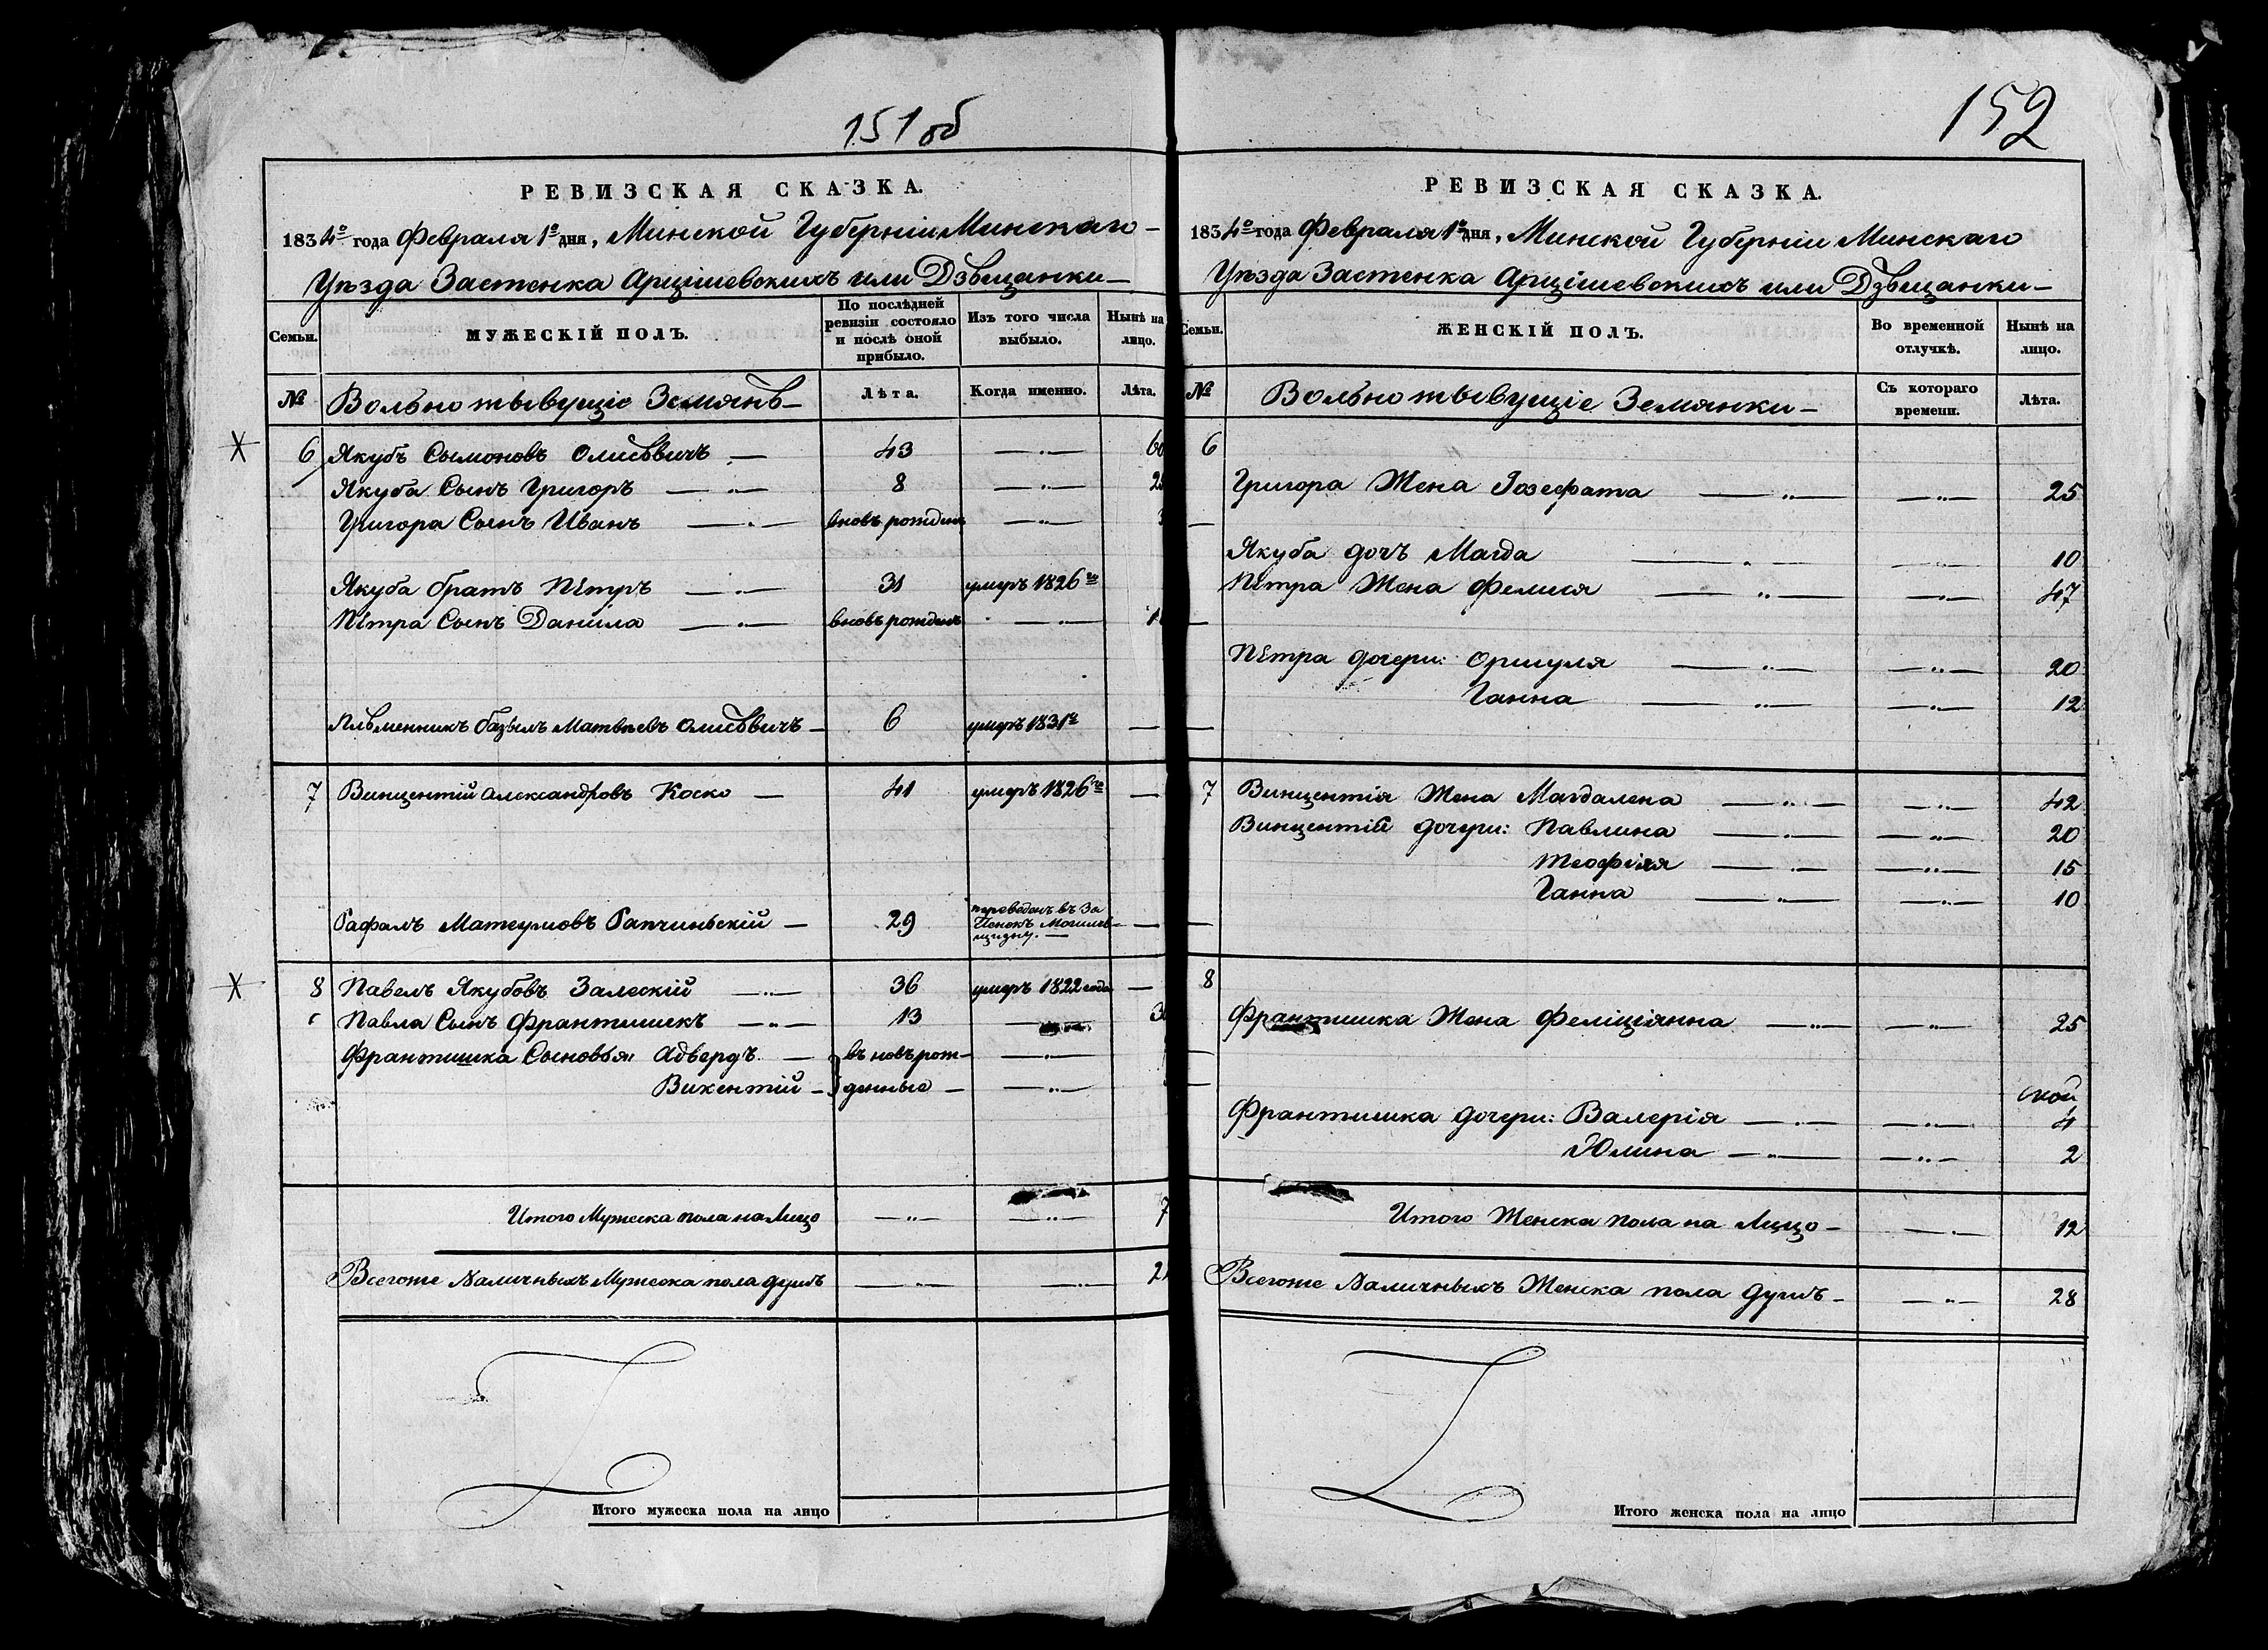 151 об
РЕВИЗСКАЯ СКАЗКА.
1834го года Февраля 1го дня, Минской Губернiи Минскаго
Уѣзда Застенка Арцiшевскихъ или Дзвѣщанки
Семьи.
МУЖЕСКIЙ ПОЛЪ.
По послѣдней ревизiи состояло и послѣ оной прибыло.
Изъ того числа выбыло.
Нынѣ на лицо.
№
Вольно живущiе Земянѣ
Лѣта.
Когда именно.
Лѣта.
6 Якубъ Сымоновъ 43
Якуба Сынъ Григоръ 8
Григора Сынъ Иванъ вновь рожденъ
Якуба братъ Пётръ 31 умеръ 1826го
Пётра Сынъ Данiла вновь рожденъ
Племенникъ Базылъ Матвѣевъ 6 умеръ 1831го
7 Винцентiй Александровъ Коско 41 умеръ 1826го
Рафалъ Матеушовъ Рапчиньскiй 29 переведенъ въ За
стенокъ
8 Павелъ Якубовъ Залескiй 36 умеръ 1822 года
Павла Сынъ Франтишекъ 13
Франтишка Сыновья: Адвердъ въ новь рож-
Викентiй денные
Итого Мужеска пола на Лицо 7
Всегоже Наличныхъ Мужеска пола душъ
Итого мужеска пола на лицо
152
РЕВИЗСКАЯ СКАЗКА.
1834го года Февраля 1го дня, Минской Губернiи Минскаго
Уѣзда Застенка Арцiшевскихъ или Дзвѣщанки
Семьи.
ЖЕНСКIЙ ПОЛЪ.
Во временной отлучкѣ.
Нынѣ на лицо.
№
Вольно живущiе Земянки
Съ котораго времени.
Лѣта.
6
Григора Жена Iозефата 25
Якуба дочь Магда 10
Пётра Жена Фелися 47
Пётра дочери: Оршуля 20
Ганна 12
7 Винцентiя Жена Магдалена 42
Винцентiй дочери: Павлина 20
Теофiля 15
Ганна 10
8
Франтишка Жена Фелiцiянна 25
Франтишка дочери: Валерiя 4
Юлина 2
Итого Женска пола на Лицо 12
Всегоже Наличныхъ Женска пола душъ 28
Итого женска пола на лицо